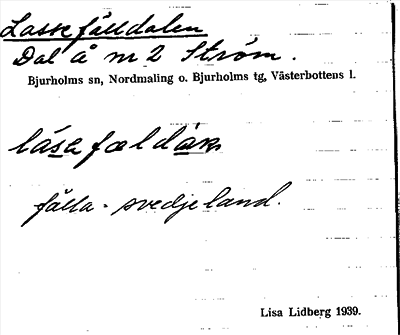 Lassefälldalen
Dal å nr 2 Ström.
Bjurholms sn, Nordmaling o. Bjurholms tg, Västerbottens l.
fälla = svedjeland.
Lisa Lidberg 1939.